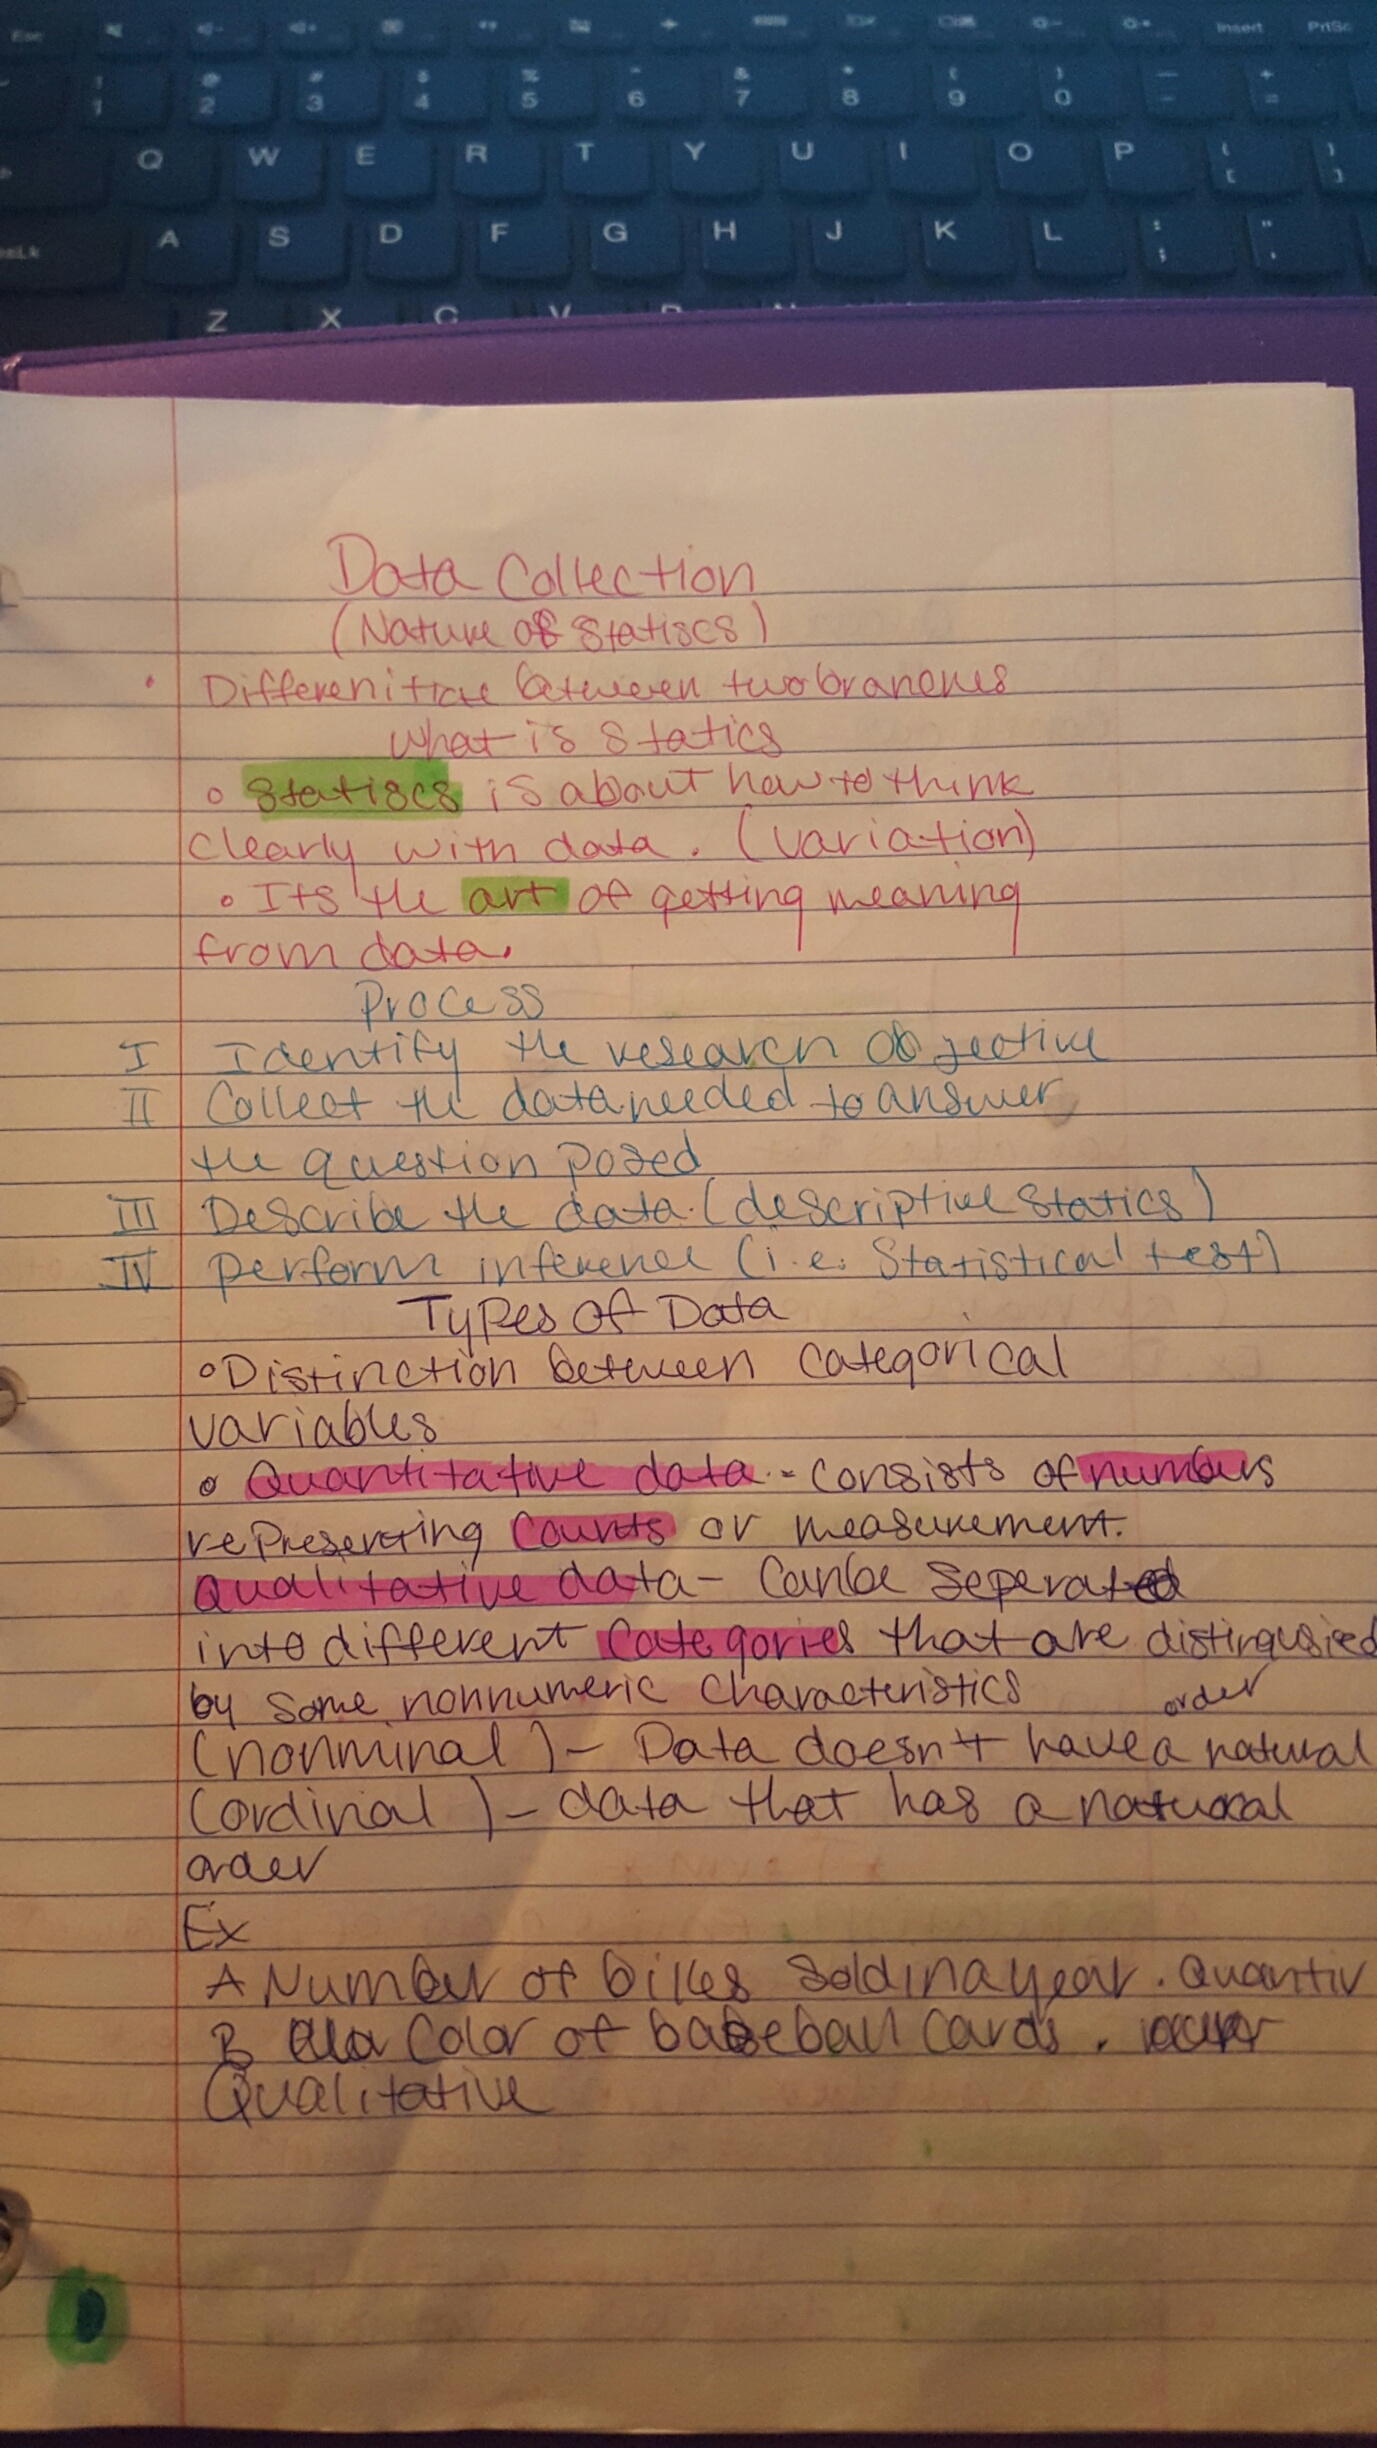 Esc Insert PrtSc
! @ # $ % ^ & * ( ) — +
1 2 3 4 5 6 7 8 9 0 - =
Q W E R T Y U I O P { }
[ ]
A S D F G H J K L : "
; '
Z X C V B N
Data Collection
(Nature of Statiscs)
Differenitiate between two branches
What is Statics
Statiscs is about how to think
clearly with data. (variation)
Its the art of getting meaning
from data.
Process
I Identify the research objective
II Collect the data needed to answer
the question posed
III Describe the data. (descriptive Statics)
IV perform inference (i.e. Statistical test)
Types of Data
Distinction between categorical
variables
Quantitative data - consists of numbers
representing counts or measurement.
Qualitative data - Can be seperated
into different categories that are distingusied
by some nonnumeric characteristics
order
(nonminal) - Data doesn't have a natural
(ordinal) - data that has a natural
order
Ex
A Number of bikes sold in a year. Quantiv
B Color of baseball cards.
Qualitative